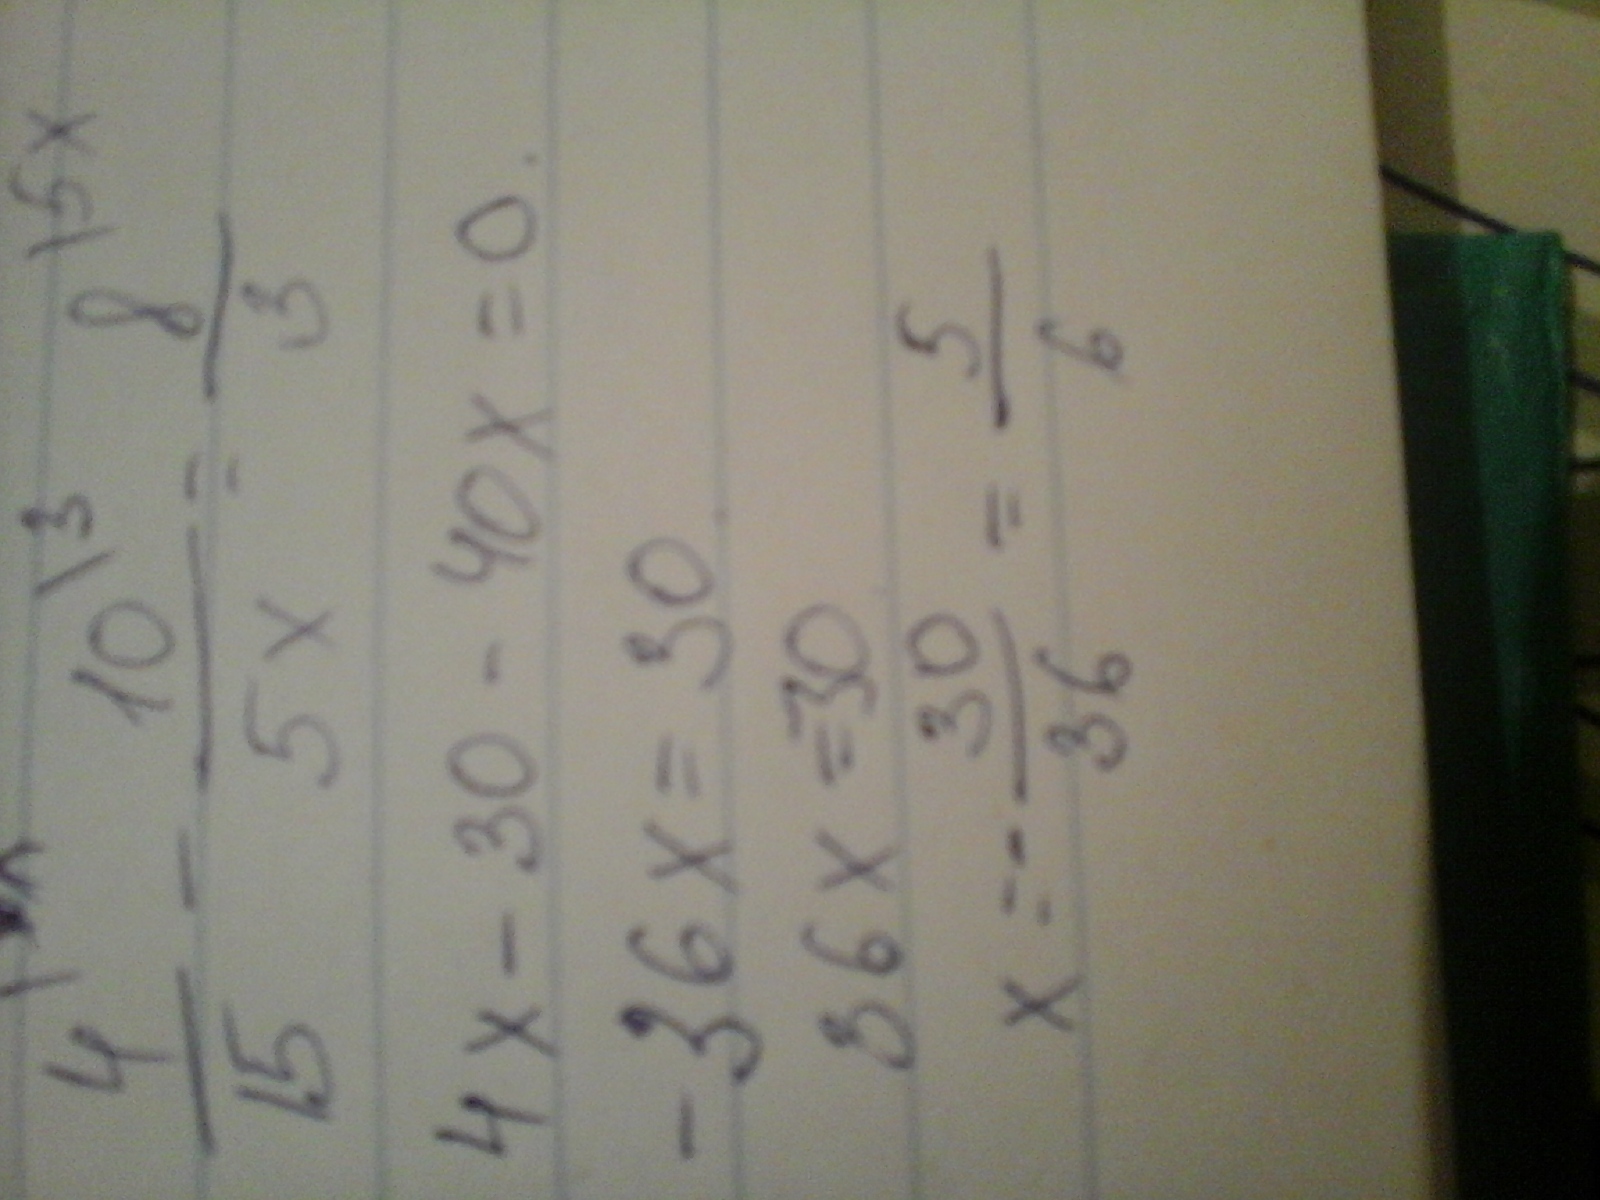 4/15 \x - 10/5x \3 = 8/3 \5x
4x - 30 - 40x = 0.
-36x = 30
36x = -30
x = - 30/36 = - 5/6